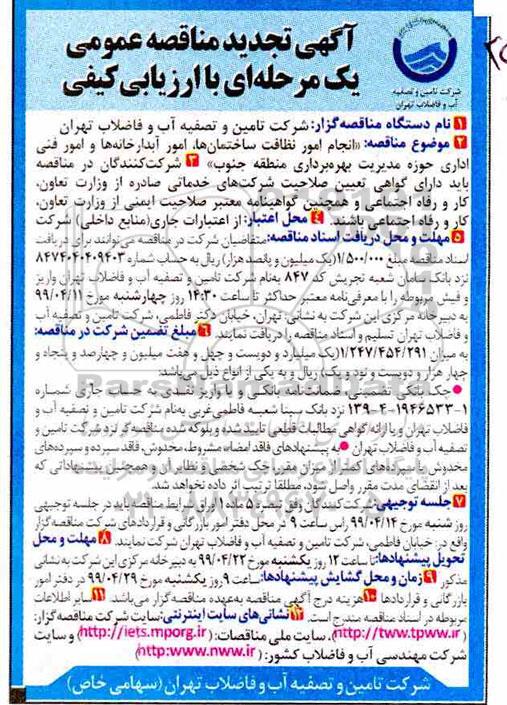 آگهی تجدید مناقصه عمومی
یک مرحله‌ای با ارزیابی کیفی
شرکت تامین و تصفیه
آب و فاضلاب تهران
۱ نام دستگاه مناقصه‌گزار: شرکت تامین و تصفیه آب و فاضلاب تهران
۲ موضوع مناقصه: «انجام امور نظافت ساختمان‌ها، امور آبدارخانه‌ها و امور فنی
اداری حوزه مدیریت بهره‌برداری منطقه جنوب» ۳ شرکت‌کنندگان در مناقصه
باید دارای گواهی تعیین صلاحیت شرکت‌های خدماتی صادره از وزارت تعاون،
کار و رفاه اجتماعی و همچنین گواهینامه معتبر صلاحیت ایمنی از وزارت تعاون،
کار و رفاه اجتماعی باشند. ۴ محل اعتبار: از اعتبارات جاری (منابع داخلی) شرکت
۵ مهلت و محل دریافت اسناد مناقصه: متقاضیان شرکت در مناقصه می‌توانند برای دریافت
اسناد مناقصه مبلغ ۱/۵۰۰/۰۰۰ (یک میلیون و پانصد هزار) ریال به حساب شماره ۸۴۷۴۰۴۰۴۰۹۴۰۳
نزد بانک سامان شعبه تجریش کد ۸۴۷ به‌نام شرکت تامین و تصفیه آب و فاضلاب تهران واریز
و فیش مربوطه را با معرفی‌نامه معتبر حداکثر تا ساعت ۱۴:۳۰ روز چهارشنبه مورخ ۹۹/۰۴/۱۱
به دبیرخانه مرکزی این شرکت به نشانی: تهران، خیابان دکتر فاطمی، شرکت تامین و تصفیه آب
و فاضلاب تهران تسلیم و اسناد مناقصه را دریافت نمایند. ۶ مبلغ تضمین شرکت در مناقصه:
به میزان ۱/۲۴۷/۴۵۴/۲۹۱ (یک میلیارد و دویست و چهل و هفت میلیون و چهارصد و پنجاه و
چهار هزار و دویست و نود و یک) ریال و به یکی از انواع ذیل می‌باشد:
● چک بانکی تضمینی، ضمانت‌نامه بانکی و یا واریز نقدی به حساب جاری شماره
۱-۱۹۴۶۵۳۳-۴-۱۳۹ نزد بانک سینا شعبه فاطمی غربی به‌نام شرکت تامین و تصفیه آب و
فاضلاب تهران و یا ارائه گواهی مطالبات قطعی تایید شده و بلوکه شده مناقصه‌گر نزد شرکت تامین و
تصفیه آب و فاضلاب تهران ● به پیشنهادهای فاقد امضاء، مشروط، مخدوش، فاقد سپرده و سپرده‌های
مخدوش یا سپرده‌های کمتر از میزان مقرر، چک شخصی و نظایر آن و همچنین پیشنهاداتی که
بعد از انقضای مدت مقرر واصل شود، مطلقا ترتیب اثر داده نخواهد شد.
۷ جلسه توجیهی: شرکت‌کنندگان وفق تبصره ۵ ماده ۱۱ برابر شرایط مناقصه باید در جلسه توجیهی
روز شنبه مورخ ۹۹/۰۴/۱۴ راس ساعت ۹ در محل دفتر امور بازرگانی و قراردادهای شرکت مناقصه‌گزار
واقع در: خیابان فاطمی، شرکت تامین و تصفیه آب و فاضلاب تهران شرکت نمایند. ۸ مهلت و محل
تحویل پیشنهادها: تا ساعت ۱۲ روز یکشنبه مورخ ۹۹/۰۴/۲۲ به دبیرخانه مرکزی این شرکت به نشانی
مذکور. ۹ زمان و محل گشایش پیشنهادها: ساعت ۹ روز یکشنبه مورخ ۹۹/۰۴/۲۹ در دفتر امور
بازرگانی و قراردادها ۱۰ هزینه درج آگهی مناقصه به‌عهده مناقصه‌گزار می‌باشد. ۱۱ سایر اطلاعات
مربوطه در اسناد مناقصه مندرج است. ۱۲ نشانی‌های سایت اینترنتی: سایت شرکت مناقصه‌گزار:
(http://www.tpww.ir)، سایت ملی مناقصات: (http://iets.mporg.ir) و سایت
شرکت مهندسی آب و فاضلاب کشور: (http:www.nww.ir)
شرکت تامین و تصفیه آب و فاضلاب تهران (سهامی خاص)